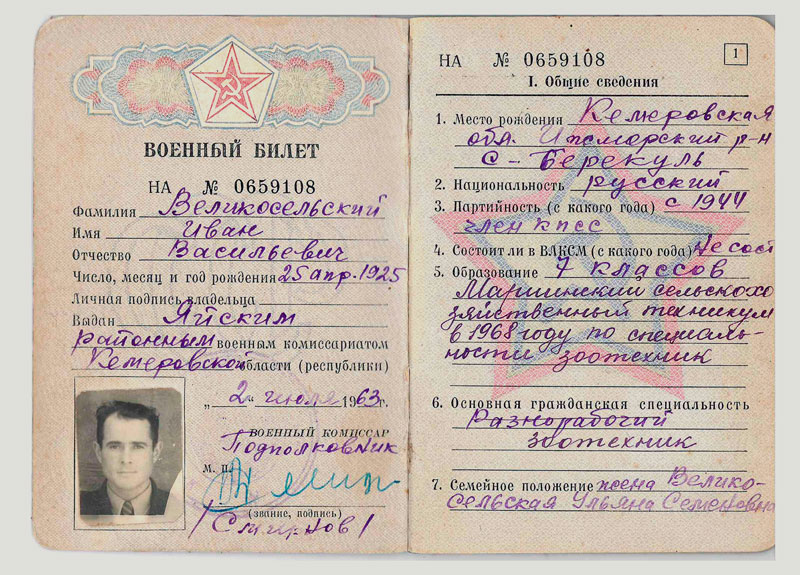 ВОЕННЫЙ БИЛЕТ
НА № 0659108
Фамилия Великосельский
Имя Иван
Отчество Васильевич
Число, месяц и год рождения 25 апр. 1925
Личная подпись владельца
Выдан Яйским
районным военным комиссариатом
Кемеровской области (республики)
„2" июля 1963 г.
ВОЕННЫЙ КОМИССАР
Подполковник
М. П.
(звание, подпись)
/Смирнов/
НА № 0659108
1
I. Общие сведения
1. Место рождения Кемеровская
обл. Ижморский р-н
с-Берекуль
2. Национальность русский
3. Партийность (с какого года) с 1944
член КПСС
4. Состоит ли в ВЛКСМ (с какого года) Не сост
5. Образование 7 классов
Мариинский сельскохо
зяйственный техникум
в 1968 году по специаль-
ности зоотехник
6. Основная гражданская специальность
Разнорабочий
зоотехник
7. Семейное положение жена Велико-
сельская Ульяна Семеновна